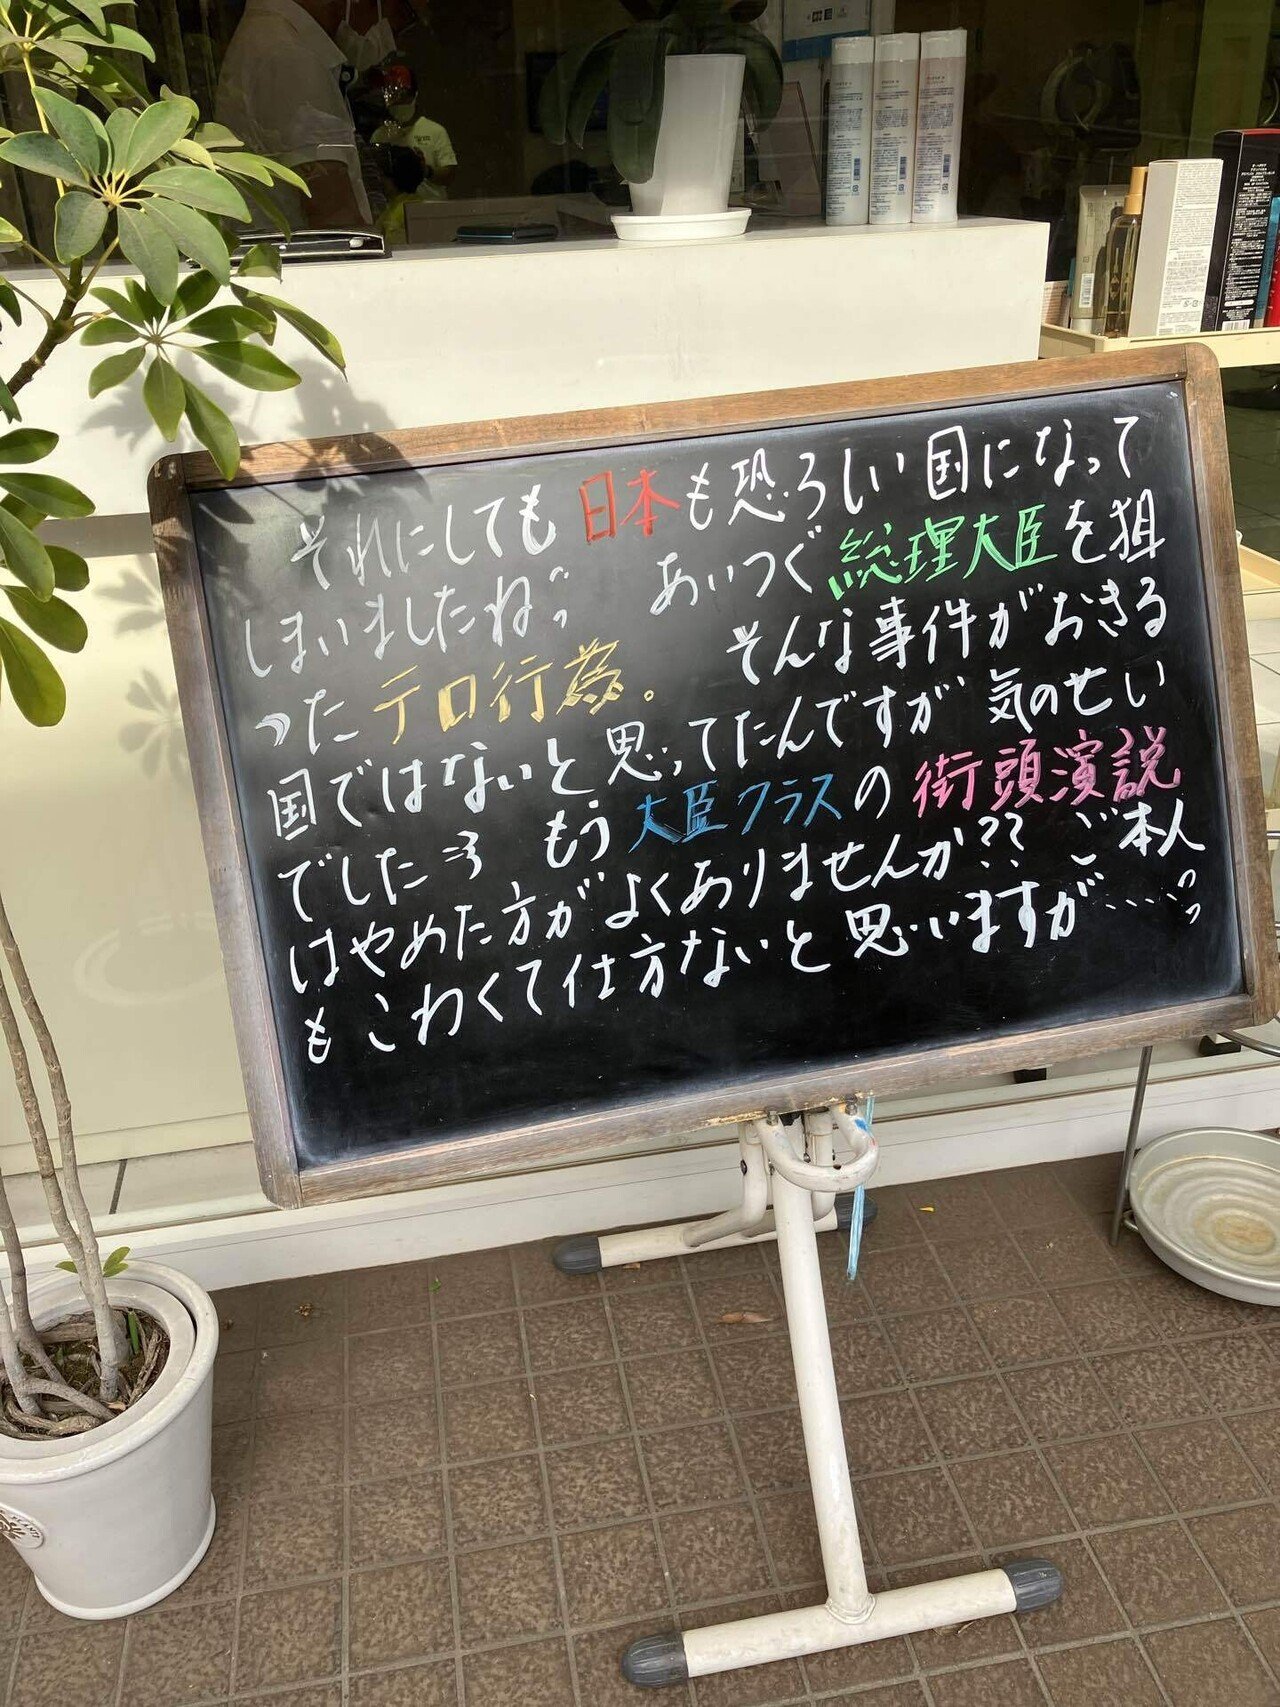 それにしても日本も恐ろしい国になって
しまいましたね〜 あいつぐ総理大臣を狙
った テロ行為。 そんな事件がおきる
国ではないと思ってたんですが 気のせい
でした もう大臣クラスの街頭演説
はやめた方がよくありませんか?? ご本人
もこわくて仕方ないと思いますが……